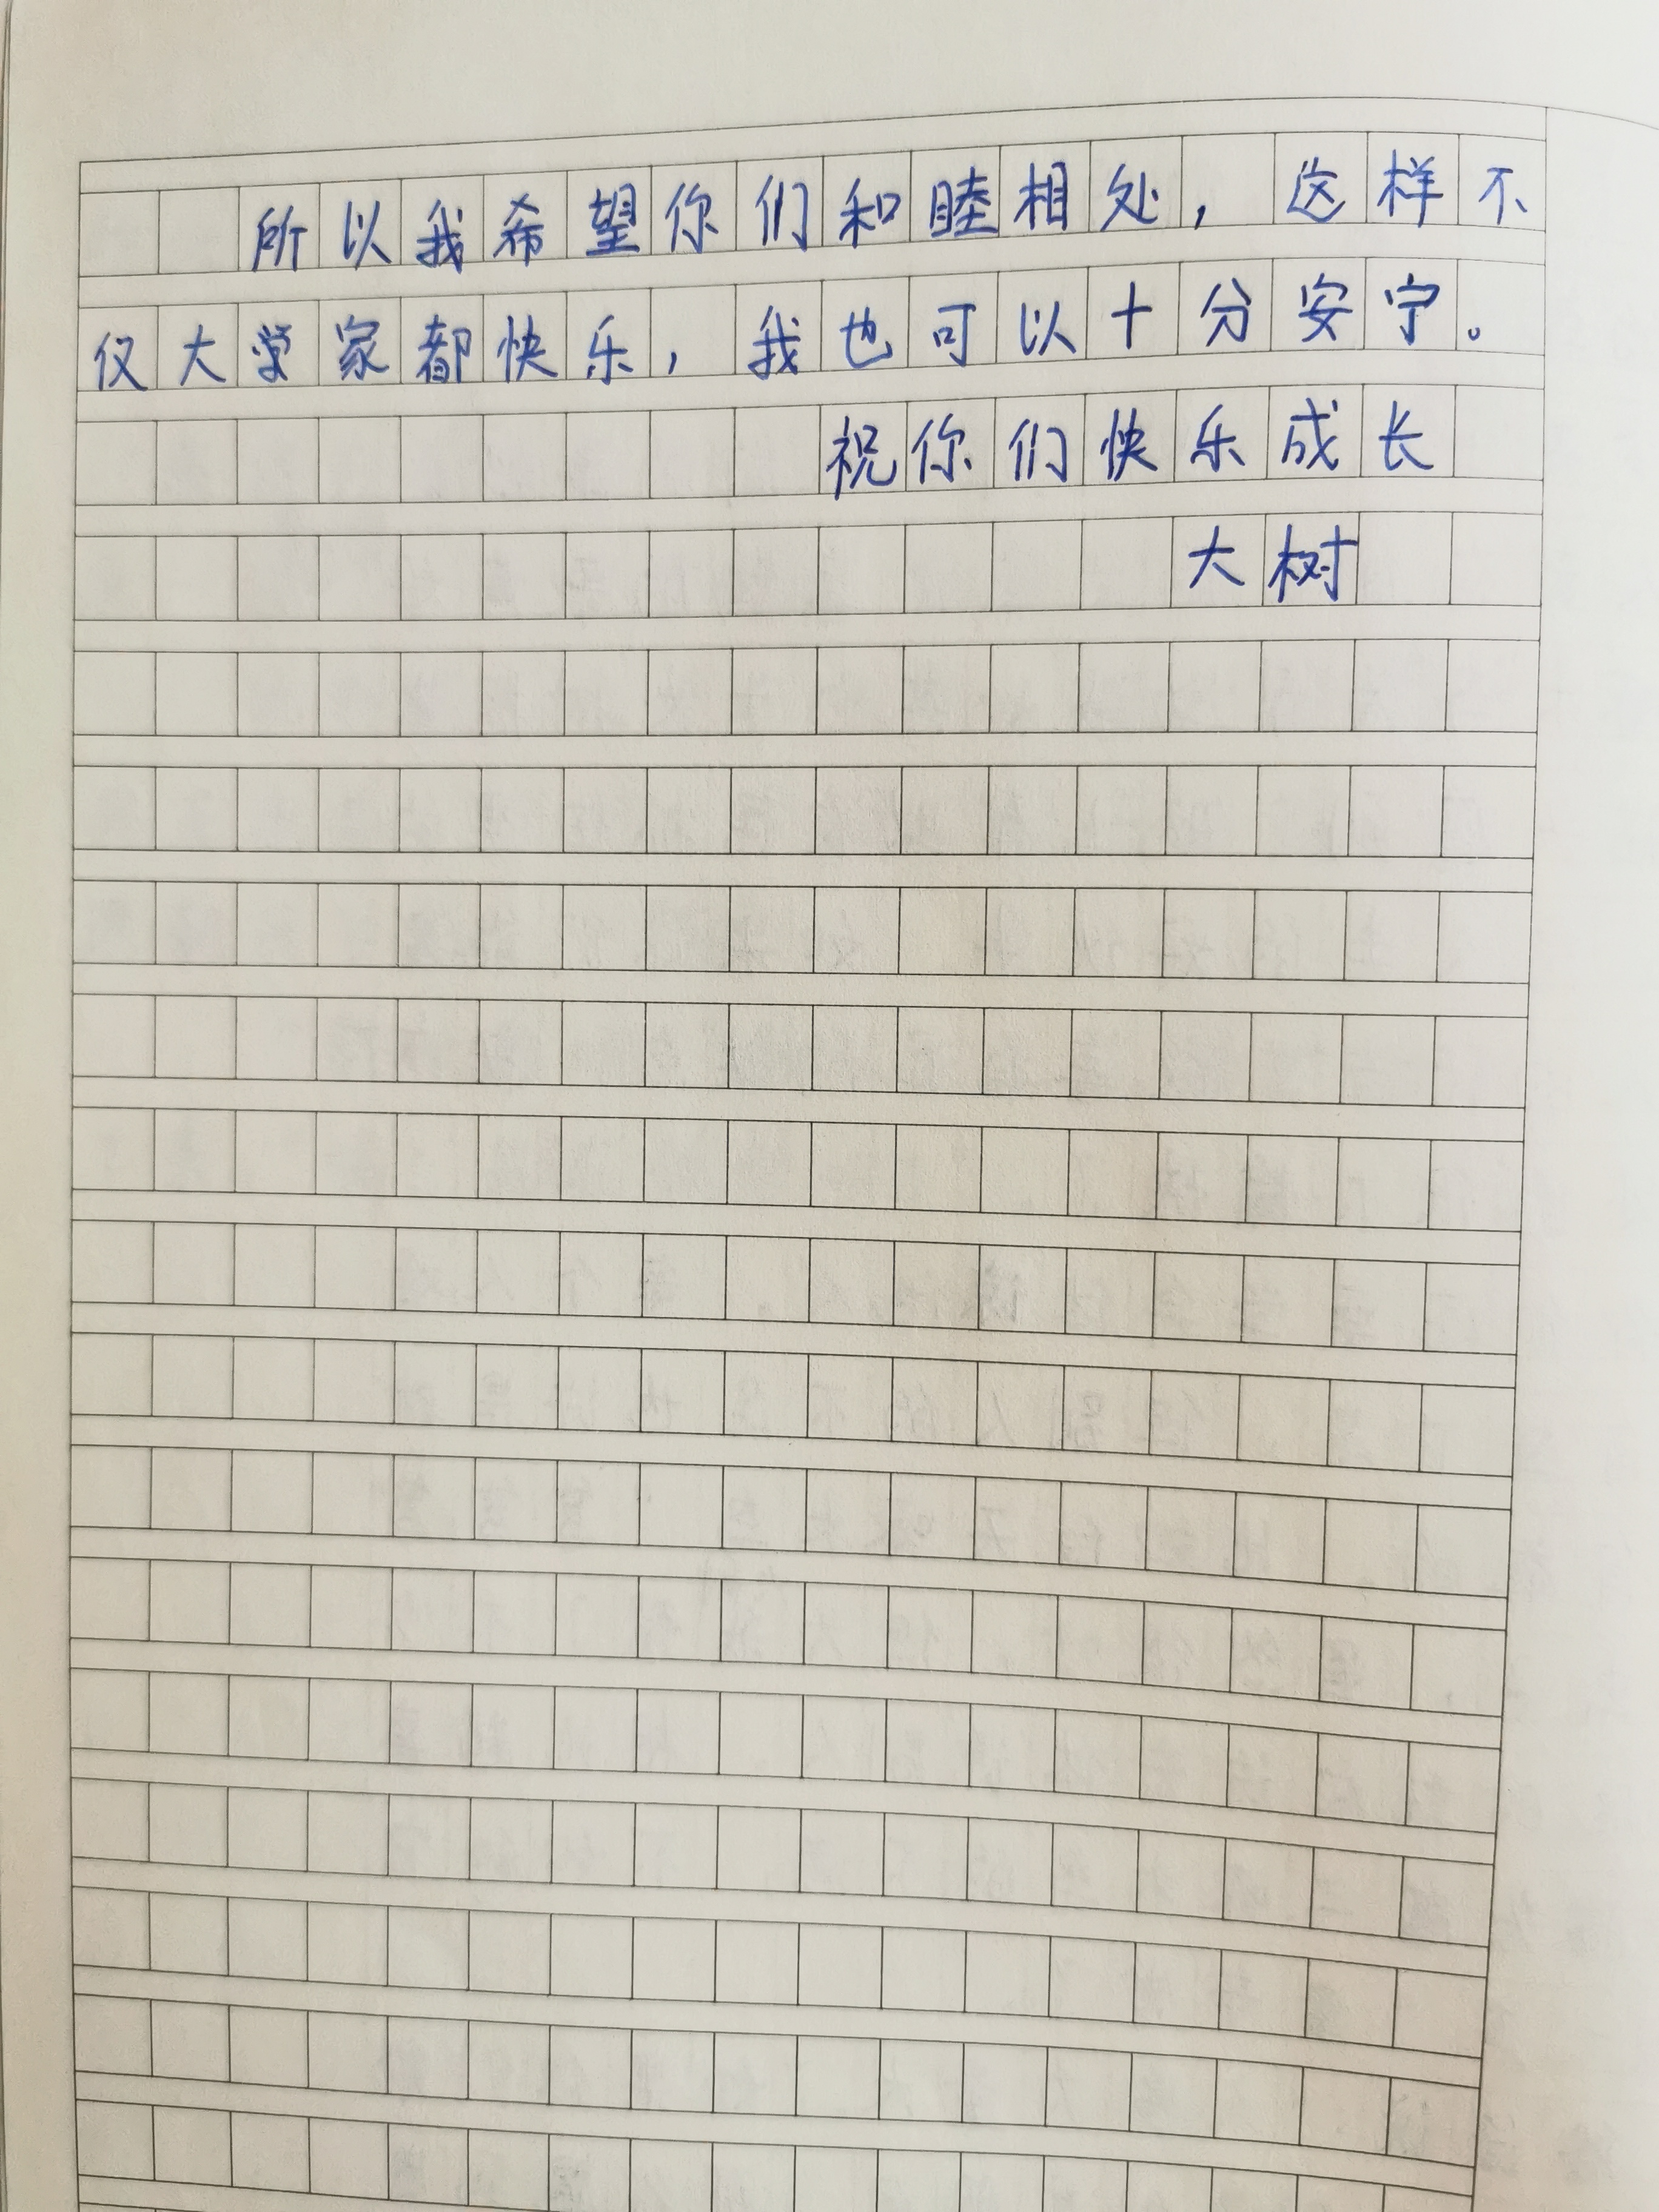 所以我希望你们和睦相处，这样不
仅大学家都快乐，我也可以十分安宁。
祝你们快乐成长
大树